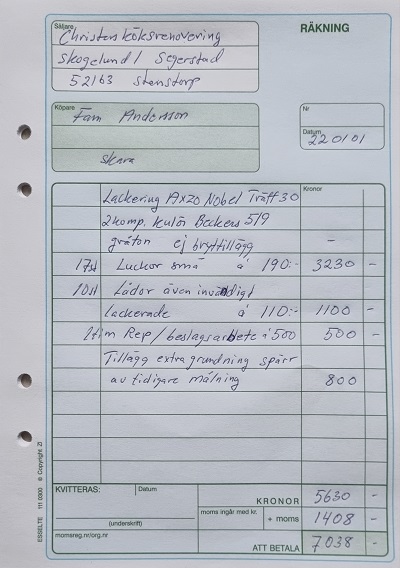 Säljare
RÄKNING
Christers köksrenovering
Skogelund 1 Segerstad
52163 Stenstorp
Köpare
Fam Andersson
Skara
Nr
Datum
220101
Kronor
Lackering Axzo Nobel Träff 30
2komp. Kulör Beckers 519
gråton ej bryttillägg -
17st Luckor små á 190:- 3230 -
10st Lådor även invändigt
lackerade á 110:- 1100 -
1tim Rep/beslagsarbete á 500 500 -
Tillägg extra grundning spärr
av tidigare målning 800
KVITTERAS:
Datum
(underskrift)
momsreg.nr/org.nr
KRONOR 5630 -
moms ingår med kr. + moms 1408 -
ATT BETALA 7038 -
ESSELTE 111 0000 © Copyright